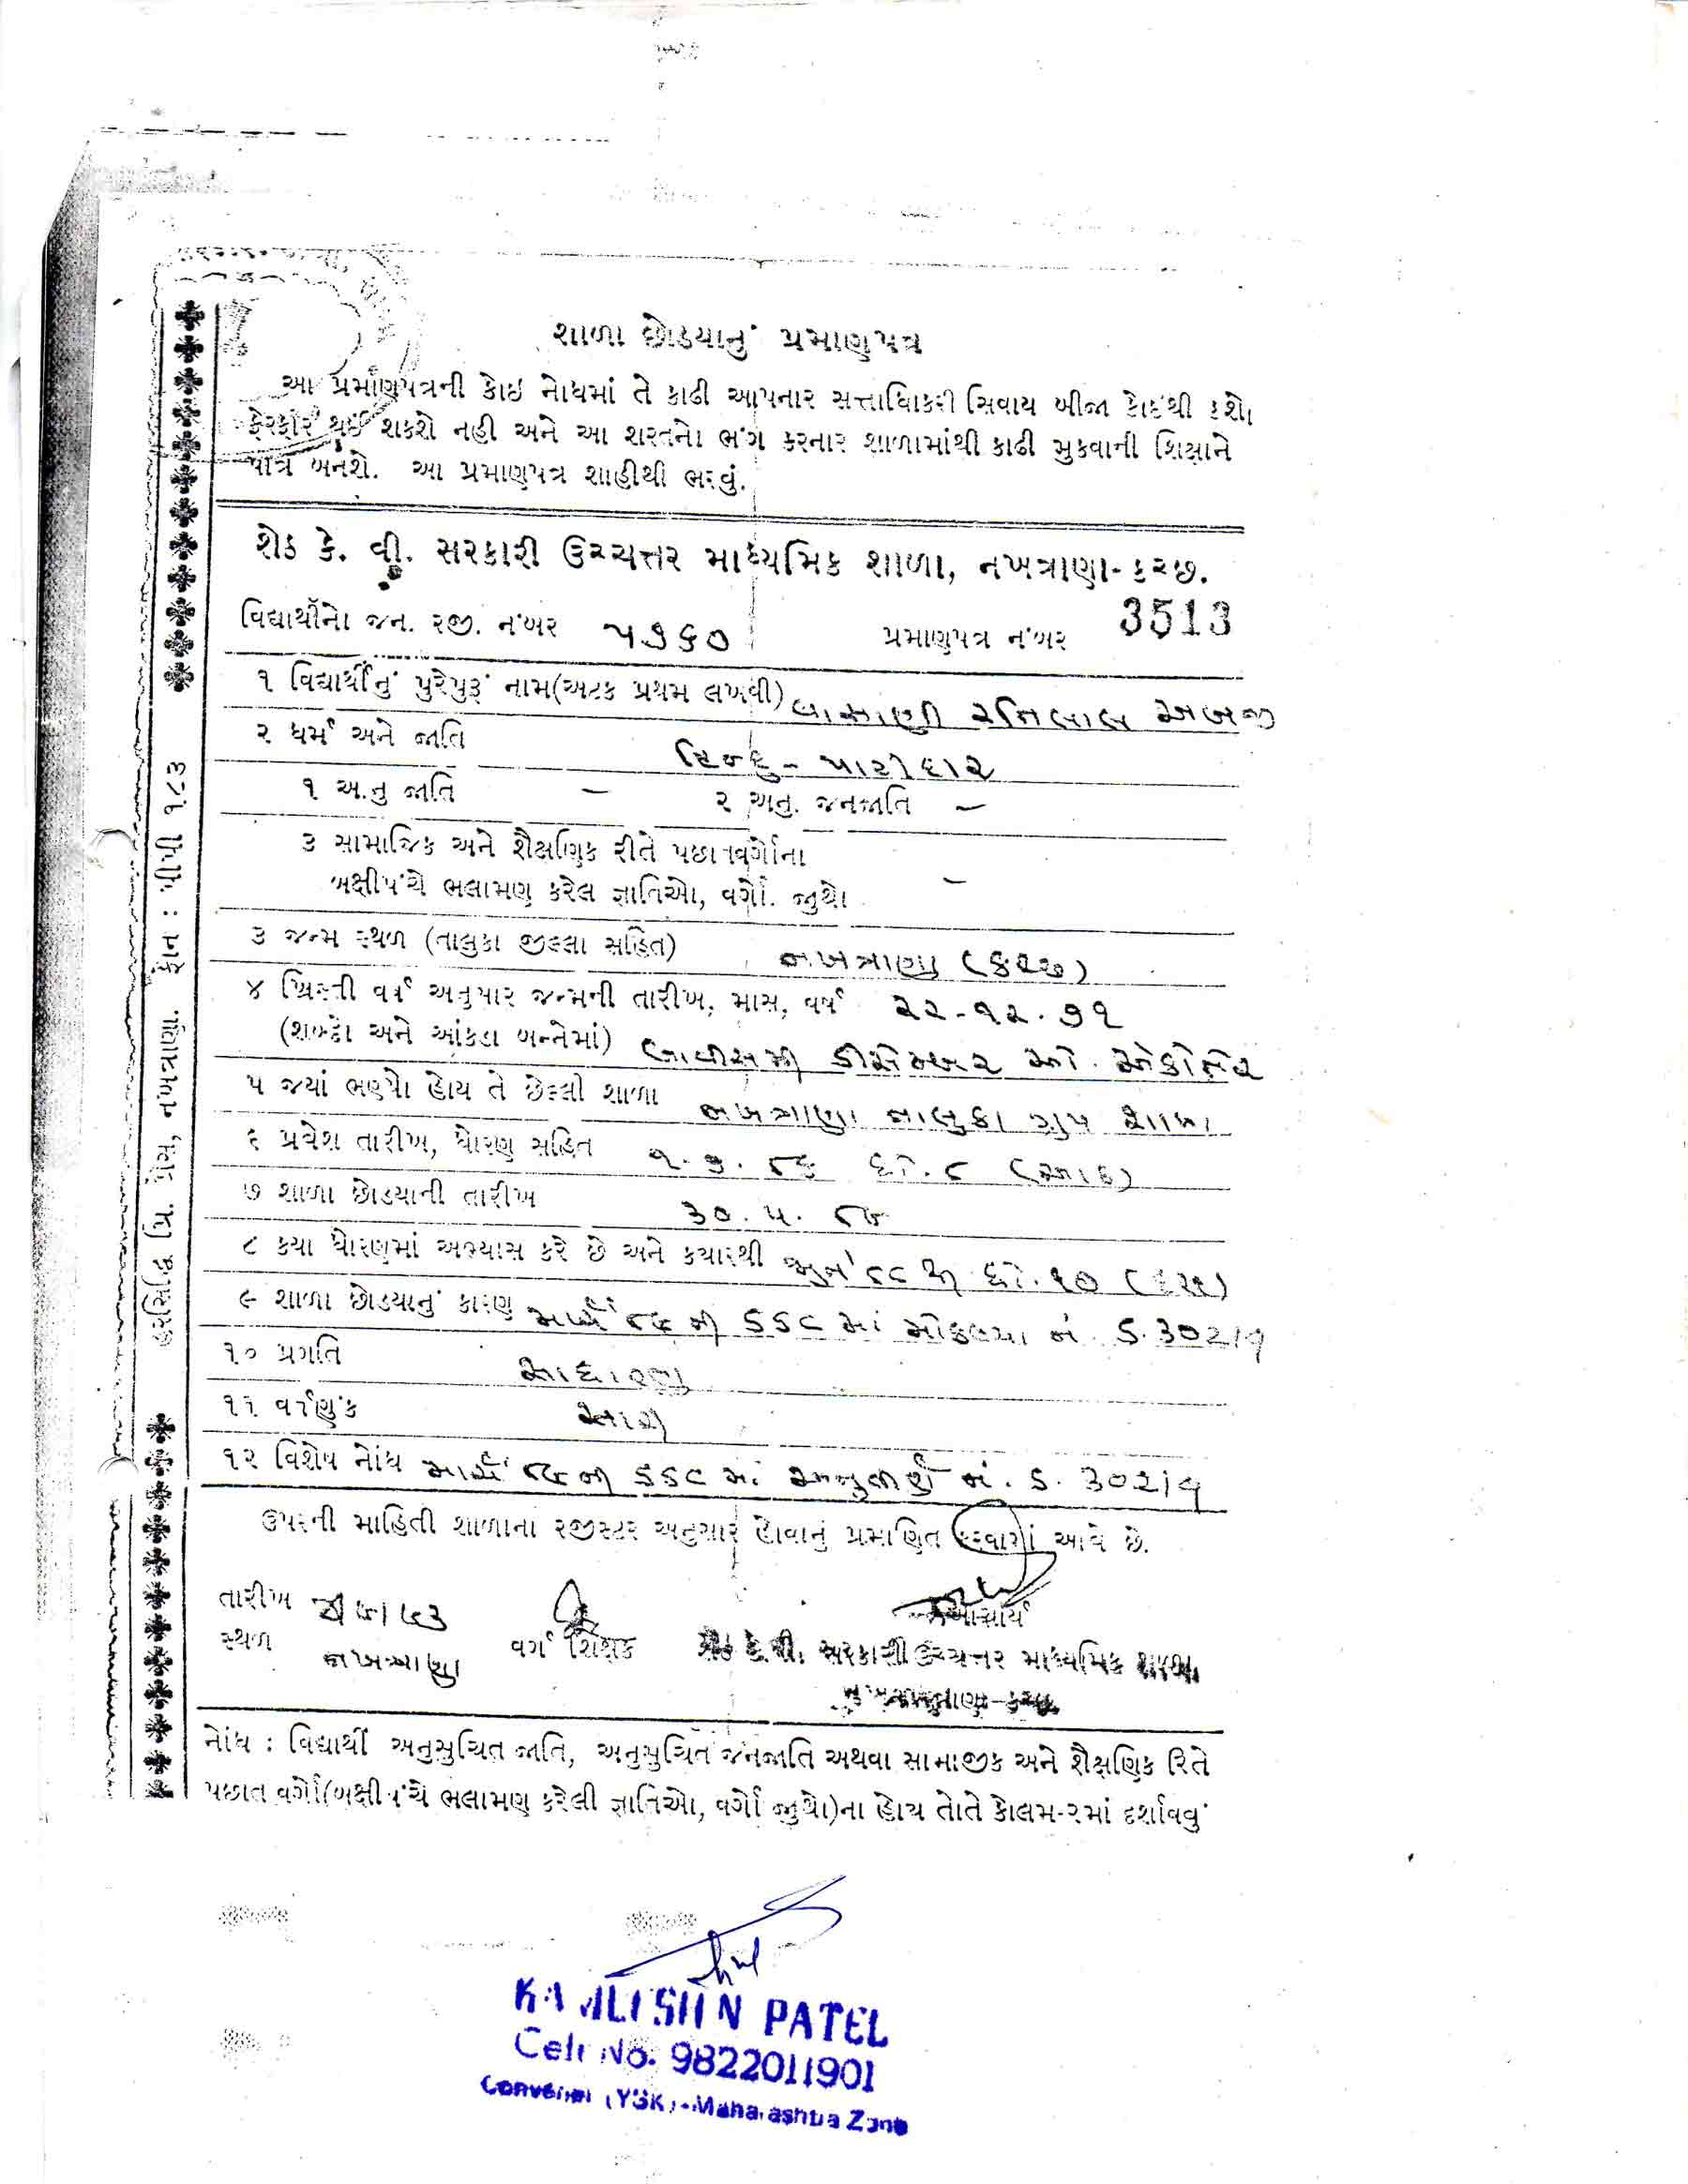 શાળા છોડયાનું પ્રમાણપત્ર
આ પ્રમાણપત્રની કોઇ નોધમાં તે કાઢી આપનાર સત્તાધિકારી સિવાય બીજા કોઇથી કશો
ફેરફાર થઈ શકશે નહી અને આ શરતનો ભંગ કરનાર શાળામાંથી કાઢી મુકવાની શિક્ષાને
પાત્ર બનશે. આ પ્રમાણપત્ર શાહીથી ભરવું.
શેઠ કે. વી. સરકારી ઉચ્ચત્તર માધ્યમિક શાળા, નખત્રાણા-કચ્છ.
વિદ્યાર્થીનો જન. રજી. નંબર ૫૭૬૦ પ્રમાણપત્ર નંબર 3513
૧ વિદ્યાર્થીનું પુરેપુરૂં નામ(અટક પ્રથમ લખવી) વાસાણી રતિલાલ અબજી
૨ ધર્મ અને જાતિ હિન્દુ - પાટીદાર
૧ અ.નુ જાતિ - ૨ અનુ. જનજાતિ -
૩ સામાજિક અને શૈક્ષણિક રીતે પછાત વર્ગોના
બક્ષીપંચે ભલામણ કરેલ જ્ઞાતિઓ, વર્ગો. જુથો -
૩ જન્મ સ્થળ (તાલુકા જીલ્લા સહિત) નખત્રાણા (કચ્છ)
૪ ખ્રિસ્તી વર્ષ અનુસાર જન્મની તારીખ, માસ, વર્ષ ૨૨-૧૨.૭૧
(શબ્દો અને આંકડા બન્નેમાં) બાવીસમી ડીસેમ્બર ઓ. એકોતેર
૫ જયાં ભણ્યો હોય તે છેલ્લી શાળા નખત્રાણા તાલુકા ગ્રુપ શાળા
૬ પ્રવેશ તારીખ, ધોરણ સહિત ૧.૭.૮૬ ધો.૮ (આઠ)
૭ શાળા છોડયાની તારીખ ૩૦.૫.૮૯
૮ કયા ધોરણમાં અભ્યાસ કરે છે અને કયારથી જુન ૮૮ થી ધો.૧૦ (દસ)
૯ શાળા છોડયાનું કારણ માર્ચ ૮૯ ની SSC માં મોકલ્યા નં. S.૩૦૨૧૧
૧૦ પ્રગતિ સાધારણ
૧૧ વર્તણુંક સારી
૧૨ વિશેષ નોંધ માર્ચ ૮૯ ની SSC માં અનુતીર્ણ નં. S. ૩૦૨૧૧
ઉપરની માહિતી શાળાના રજીસ્ટર અનુસાર હોવાનું પ્રમાણિત કરવામાં આવે છે.
તારીખ
આચાર્ય
સ્થળ નખત્રાણા વર્ગ શિક્ષક શેઠ કે.વી. સરકારી ઉચ્ચત્તર માધ્યમિક શાળા,
નખત્રાણા-કચ્છ
નોંધ : વિદ્યાર્થી અનુસુચિત જાતિ, અનુસુચિત જનજાતિ અથવા સામાજીક અને શૈક્ષણિક રિતે
પછાત વર્ગો(બક્ષીપંચે ભલામણ કરેલી જ્ઞાતિઓ, વર્ગો જુથો)ના હોય તોતે કોલમ-૨માં દર્શાવવું
હરસિધ્ધિ પ્રિ. પ્રેસ, નખત્રાણા. ફોન : પીપી ૧૮૩
PATEL
Cell No. 9822011901
Convener (YSK)-Maharashtra Zone